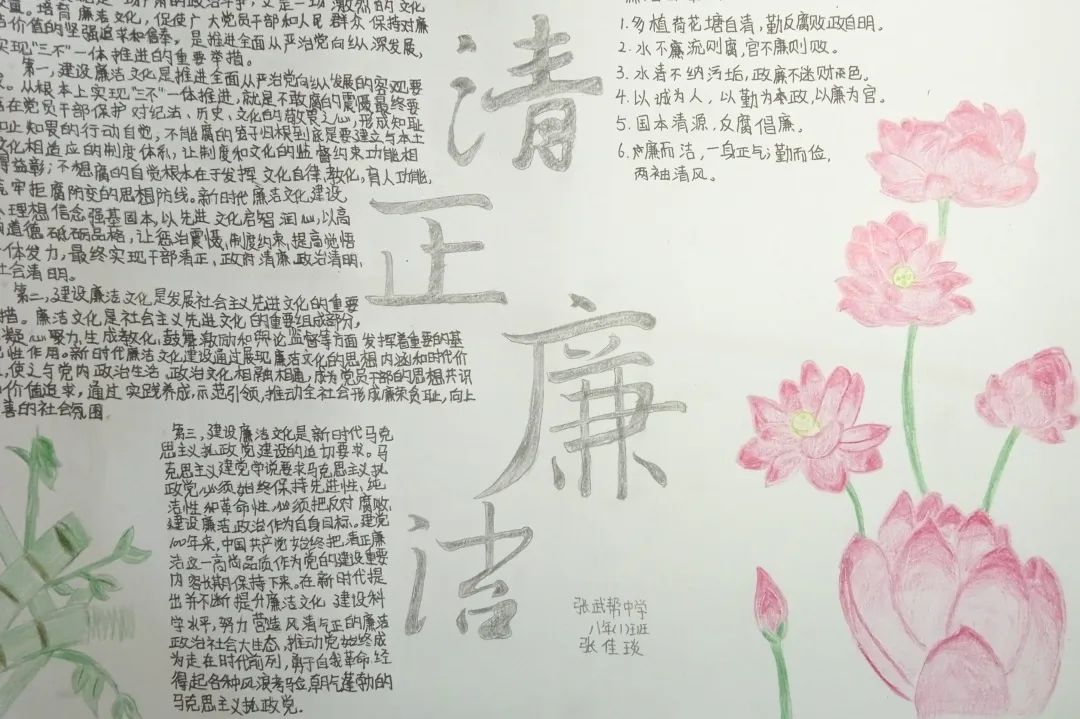 培育廉洁文化,促使广大党员干部和人民群众保持对廉
洁价值的坚强追求和信奉,是推进全面从严治党向纵深发展,
实现“三不”一体推进的重要举措。
第一,建设廉洁文化是推进全面从严治党向纵发展的客观要
从根本上实现“三不”一体推进,就是不敢腐的震慑最终要
在党员干部保护对纪法、历史、文化的敬畏之心,形成知耻
知止知畏的行动自觉;不能腐的笼子归根到底是要建立与本土
文化相适应的制度体系,让制度和文化的监督约束功能相
得益彰;不想腐的自觉根本在于发挥文化自律,教化,育人功能,
筑牢拒腐防变的思想防线。新时代廉洁文化建设
理想信念强基固本,以先进文化启智润心,以高
道德砥砺品格,让惩治震慑、制度约束、提高觉悟
一体发力,最终实现干部清正、政府清廉、政治清明、
社会清明。
第二,建设廉洁文化是发展社会主义先进文化的重要
措。廉洁文化是社会主义先进文化的重要组成部分,
凝心聚力,生成教化,鼓舞激励和舆论监督等方面发挥着重要的基
性作用。新时代廉洁文化建设通过展现廉洁文化的思想内涵和时代价
使之与党内政治生活、政治文化相融相通,成为党员干部的思想共识
价值追求,通过实践养成,示范引领,推动全社会形成廉荣贪耻,向上
善的社会氛围
第三,建设廉洁文化是新时代马克
思主义执政党建设的迫切要求。马
克思主义建党学说要求马克思主义执
政党必须始终保持先进性、纯
洁性和革命性,必须把反对腐败,
建设廉洁政治作为自身目标。建党
100年来,中国共产党始终把清正廉
洁这一高尚品质作为党的建设重要
内容长期保持下来。在新时代提
出并不断提升廉洁文化建设科
学水平,努力营造风清气正的廉洁
政治社会大生态,推动党始终成
为走在时代前列,勇于自我革命,经
得起各种风浪考验,朝气蓬勃的
马克思主义执政党。
清
正
廉
洁
1.多植荷花塘自清,勤反腐败政自明。
2.水不廉流则腐,官不廉则败。
3.水清不纳污垢,政廉不迷财色。
4.以诚为人,以勤为参政,以廉为官。
5.国本清源,反腐倡廉。
6.廉而洁,一身正气;勤而俭,
两袖清风。
张武帮中学
八年(1)班
张佳琰